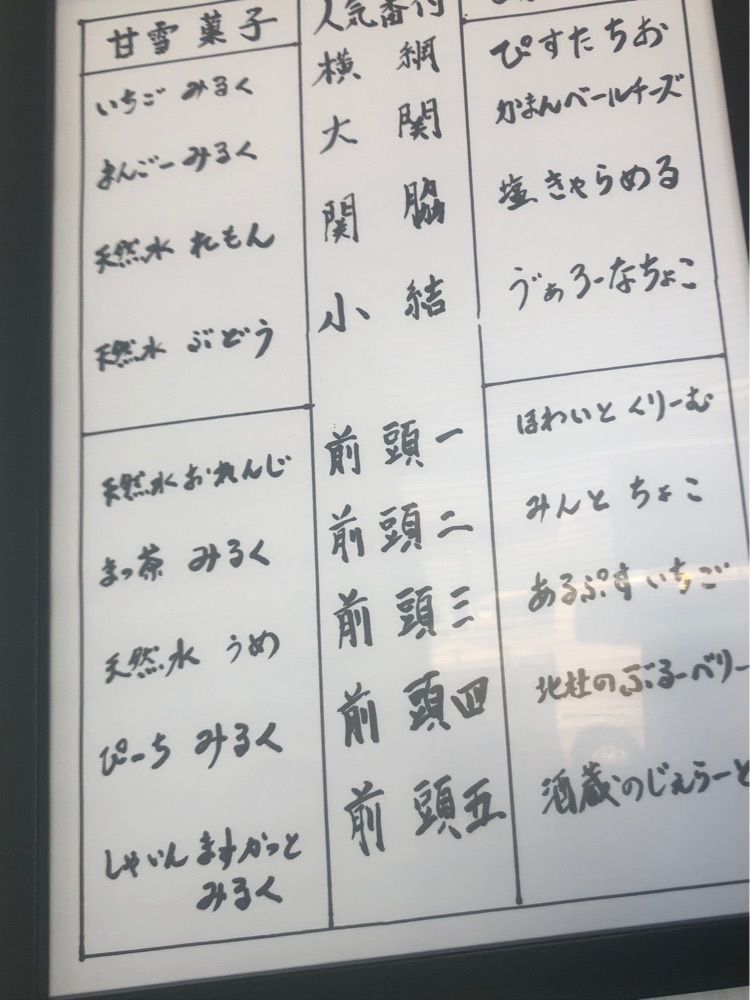 甘雪菓子 人気番付
いちご みるく 横綱 ぴすたちお
まんごーみるく 大関 かまんベールチーズ
天然水 れもん 関脇 塩きゃらめる
天然水 ぶどう 小結 ゔぁろーなちょこ
天然水おれんじ 前頭一 ほわいとくりーむ
まっ茶 みるく 前頭二 みんとちょこ
天然水 うめ 前頭三 あるぷすいちご
ぴーち みるく 前頭四 北杜のぶるーベリー
しゃいんますかっと 前頭五 酒蔵のじぇらーと
みるく